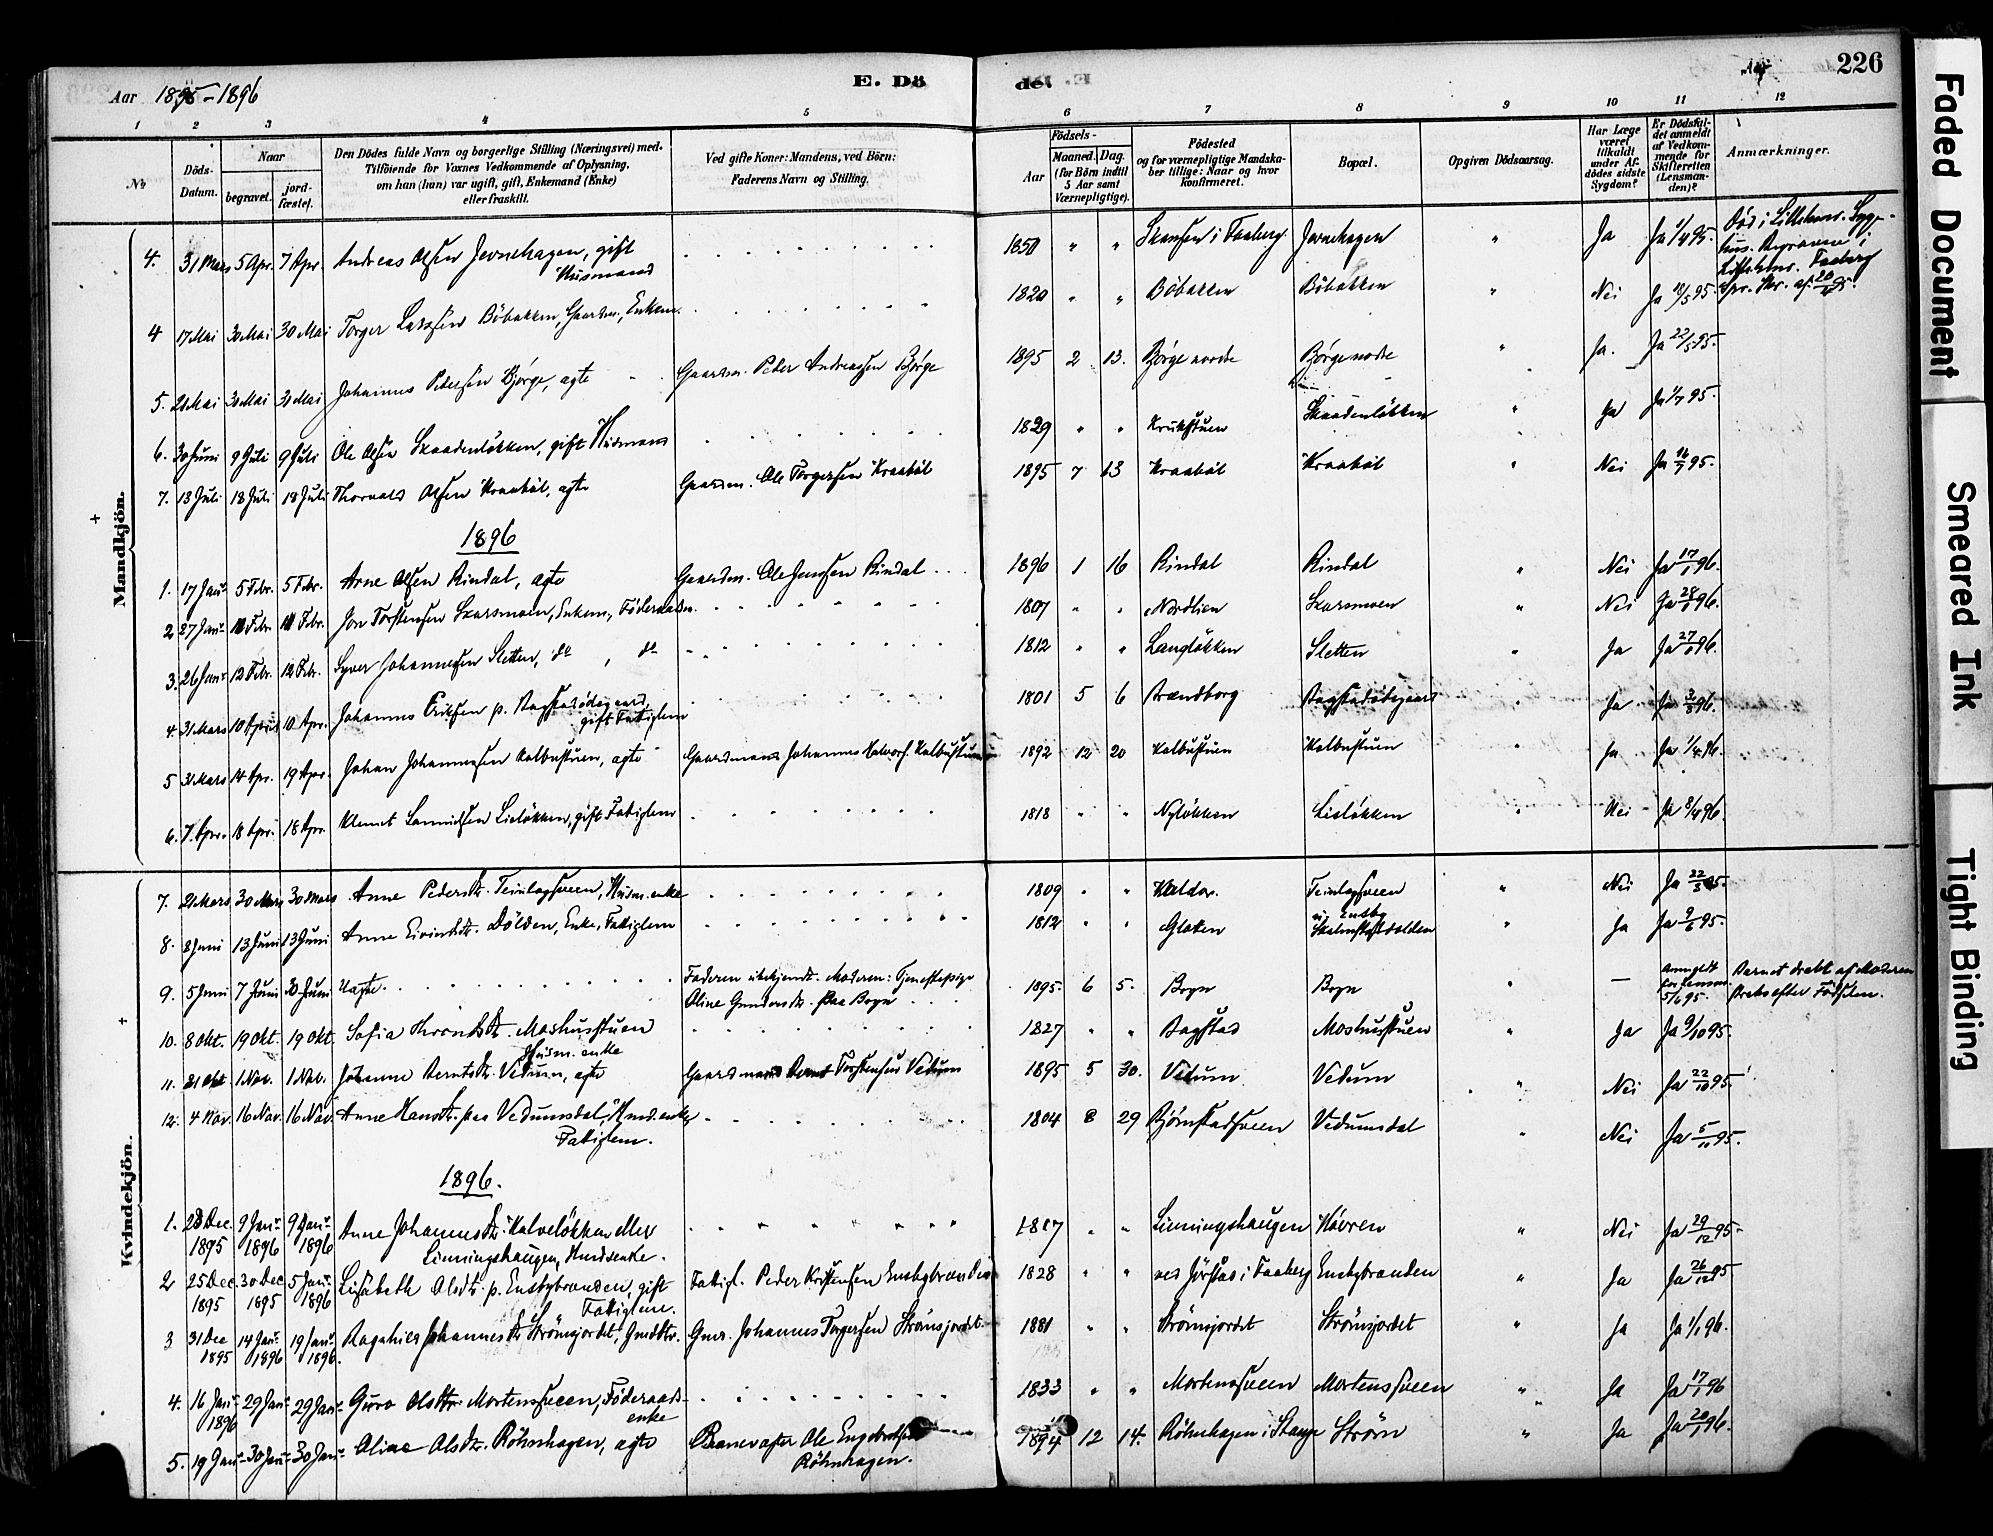 Aar 1895-1896
E. Dö
de.
226
Faded Document
Smeared Ink
Tight Binding
1 2 3 4 5 6 7 8 9 10 11 12
No
Döds-Datum.
Naar
begravet.
jordfæstet.
Den Dödes fulde Navn og borgerlige Stilling (Næringsvei) med-
Tilföiende for Voxnes Vedkommende af Oplysning,
om han (hun) var ugift, gift, Enkemand (Enke)
eller fraskilt.
Ved gifte Koner: Mandens, ved Börn:
Faderens Navn og Stilling.
Födsels-
Aar
Maaned. Dag.
(for Börn indtil
5 Aar samt
Værnepligtige).
Födested
og for værnepligtige Mandska-
ber tillige: Naar og hvor
konfirmeret.
Bopæl.
Opgiven Dödsaarsag.
Har Læge
været
tilkaldt
under Af-
dödes sidste
Sygdom?
Er Dödsfal-
det anmeldt
af Vedkom-
mende for
Skifteretten
(Lensman-
den)?
Anmærkninger.
Mandkjön.
4. 31 Mars 5 Apr. 7 Apr. Andreas Olsen Jevnehagen, gift Husmand 1850 " " Skansen i Faaberg Jevnehagen " Ja Ja 1/4 95. Död i Lilleham. Syge-
hus. Begravne i
4 17 Mai 30 Mai 30 Mai Torger Larssen Böbakken, Gaardm., Enkem. 1820 " " Böbakken Böbakken " Nei Ja 18/5 95.
5. 21 Mai 30 Mai 30 Mai Johannes Pedersen Bjørge, ægte Gaardm. Peder Andreassen Bjørge 1895 2 13. Bjørge nordre Bjørge nodre " Ja. Ja 22/5 95.
6. 30 Juni 9 Juli 9 Juli Ole Olsen Skaadenløkken, gift Husmand 1829 " " Krukstuen Skaadenløkken " Ja Ja 1/7 95.
7. 13 Juli 18 Juli 18 Juli Thorvald Olsen Kraabøl, ægte Gaardm. Ole Torgersen Kraabøl 1895 7 13 Kraabøl Kraabøl " Nei Ja 16/7 95.
1896
1. 17 Janr 5 Febr. 5 Febr. Arne Olsen Rindal, ægte Gaardm. Ole Jensen Rindal 1896 1 16 Rindal Rindal " Nei Ja 17/1 96.
2 27 Janr 11 Febr. 11 Febr. Jon Torstensen Skarsmoen, Enkem., Föderaadsm. 1807 " " Nordlien Skarsmoen " Nei Ja 28/1 96.
3. 26 Janr 12 Febr. 12 Febr. Syver Johannesen Sletten, do , do 1812 " " Langløkken Sletten " Ja Ja 27/1 96.
4 31 Mars 10 April 10 Apr. Johannes Eriksen p. Bagstadødegaard, gift Fattiglem 1801 5 6 Brændborg Bagstadødegaard " Ja Ja 96.
5 31 Mars 14 Apr. 19 Apr. Johan Johannesen Kalbustuen, ægte Gaardmand Johannes Halvors. Kalbustuen 1892 12 20 Kalbustuen Kalbustuen " Ja Ja 1/4 96.
6. 7. Apr. 18 Apr. 18 Apr. Klemet Samuelsen Lieløkken, gift Fattiglem 1818 " " Nyløkken Lieløkken " Nei Ja 8/4 96.
Kvindekjön.
7. 21 Mars 30 Mars 30 Mars Anne Pedersdtr. Teinlagsveen, Husm. enke 1809 " " Kaldor. Teinlagsveen " Nei Ja 22/3 95.
8. 8 Juni 13 Juni 13 Juni Anne Eivindsdtr. Dölden, Enke, Fattiglem 1812 " " Gloken Ensby " Ja Ja 9/6 95.
9. 5 Juni 7 Juni 30 Juni Uægte. Faderen ubekjendt. Moderen: Tjenestepige
Oline Gundersdtr. paa Bogn 1895. 6 5. Bogn Bogn " — Anmeldt 5/6 95. Barnet dræbt af Moderen
strax efter Födselen.
10. 8 Okt. 19 Okt. 19 Okt. Sofia Throndsdtr. Moshusstuen Husm. enke 1827 " " Bagstad Moshusstuen " Ja Ja 9/10 95.
11. 21 Okt 1 Nov. 1 Nov. Johanne Berntsdtr. Vedum, ægte Gaardmand Bernt Torstensen Vedum 1895 5 30. Vedum Vedum " Nei Ja 22/10 95.
12. 4 Nov. 16 Nov. 16 Nov. Anne Hansdtr. paa Vedumsdal, Hmd.enke, Fattiglem. 1804 8 29 Bjørnstadsveen Vedumsdal " Nei Ja 5/11 95.
1896.
1. 28 Dec. 1895 9 Janr 1896 9 Janr 1896 Anne Johannesdtr. Kalveløkken eller
Linningshaugen, Hmdsenke. 1817 " " Linningshaugen Høvren " Nei Ja 29/12 95.
2 25 Dec. 1895 30 Dec 1895 5 Janr. 1896 Lisabeth Olsdtr. p. Ensbybranden, gift
Fattiglem. Fattigl. Peder Kristensen Ensbybranden 1828 " " ved Jørstad i Faaberg Ensbybranden " Ja Ja 26/12 95
3 31 Dec 1895 14 Janr. 1896 19 Janr 1896. Ragnhild Johannesdtr. Strømsjordet, Gmddtr. Gmd. Johannes Torgersen Strømsjordet 1881 " " Strømsjordet Strømsjordet " Ja Ja 1/1 96.
4. 16 Janr 1896 29 Janr 29 Janr Guro Olsdtr. Mortensveen, Föderaads-
enke 1833 " " Mortensveen Mortensveen " Ja Ja 17/1 96
5. 19 Janr 30 Janr 30 Janr Oline Olsdtr. Röhnhagen, ægte Banevogter Ole Engebretsen
Röhnhagen. 1894 12 14. Röhnhagen i Stange Strøm " Ja Ja 20/1 96.